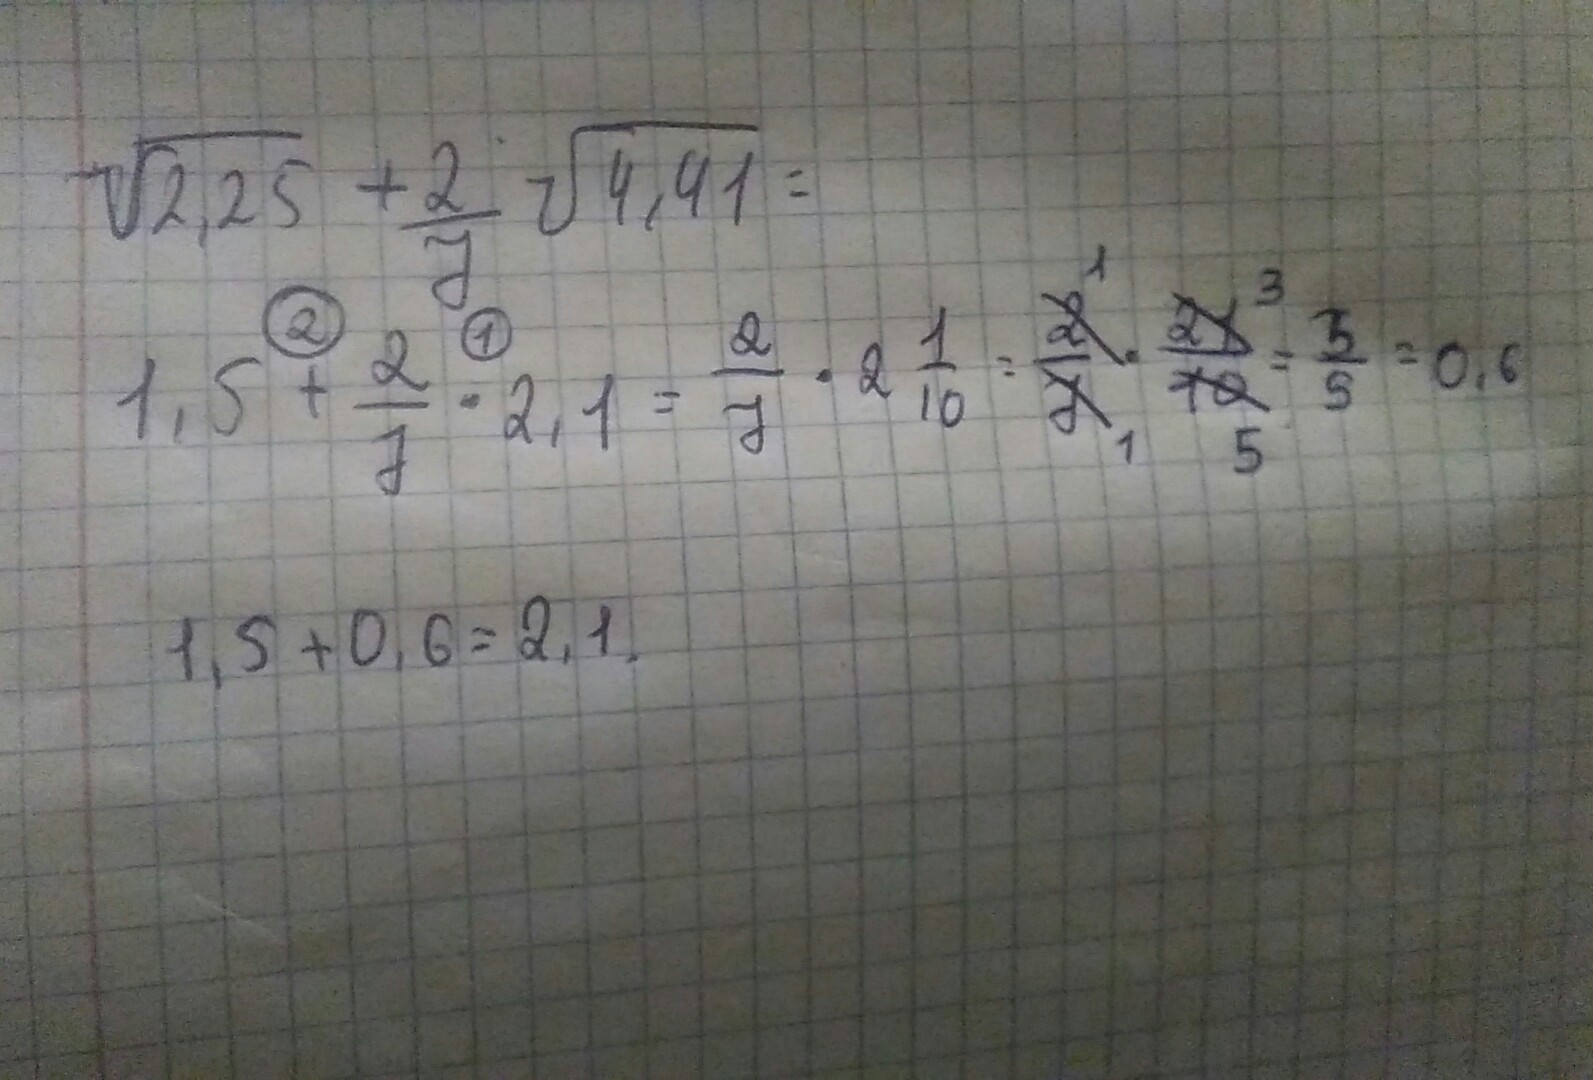 √2,25 + 2/7 √4,41 =
1,5 ②+ 2/7 ①· 2,1 = 2/7 · 2 1/10 = 2/7 · 21/10 = 3/5 = 0,6
1,5 + 0,6 = 2,1.